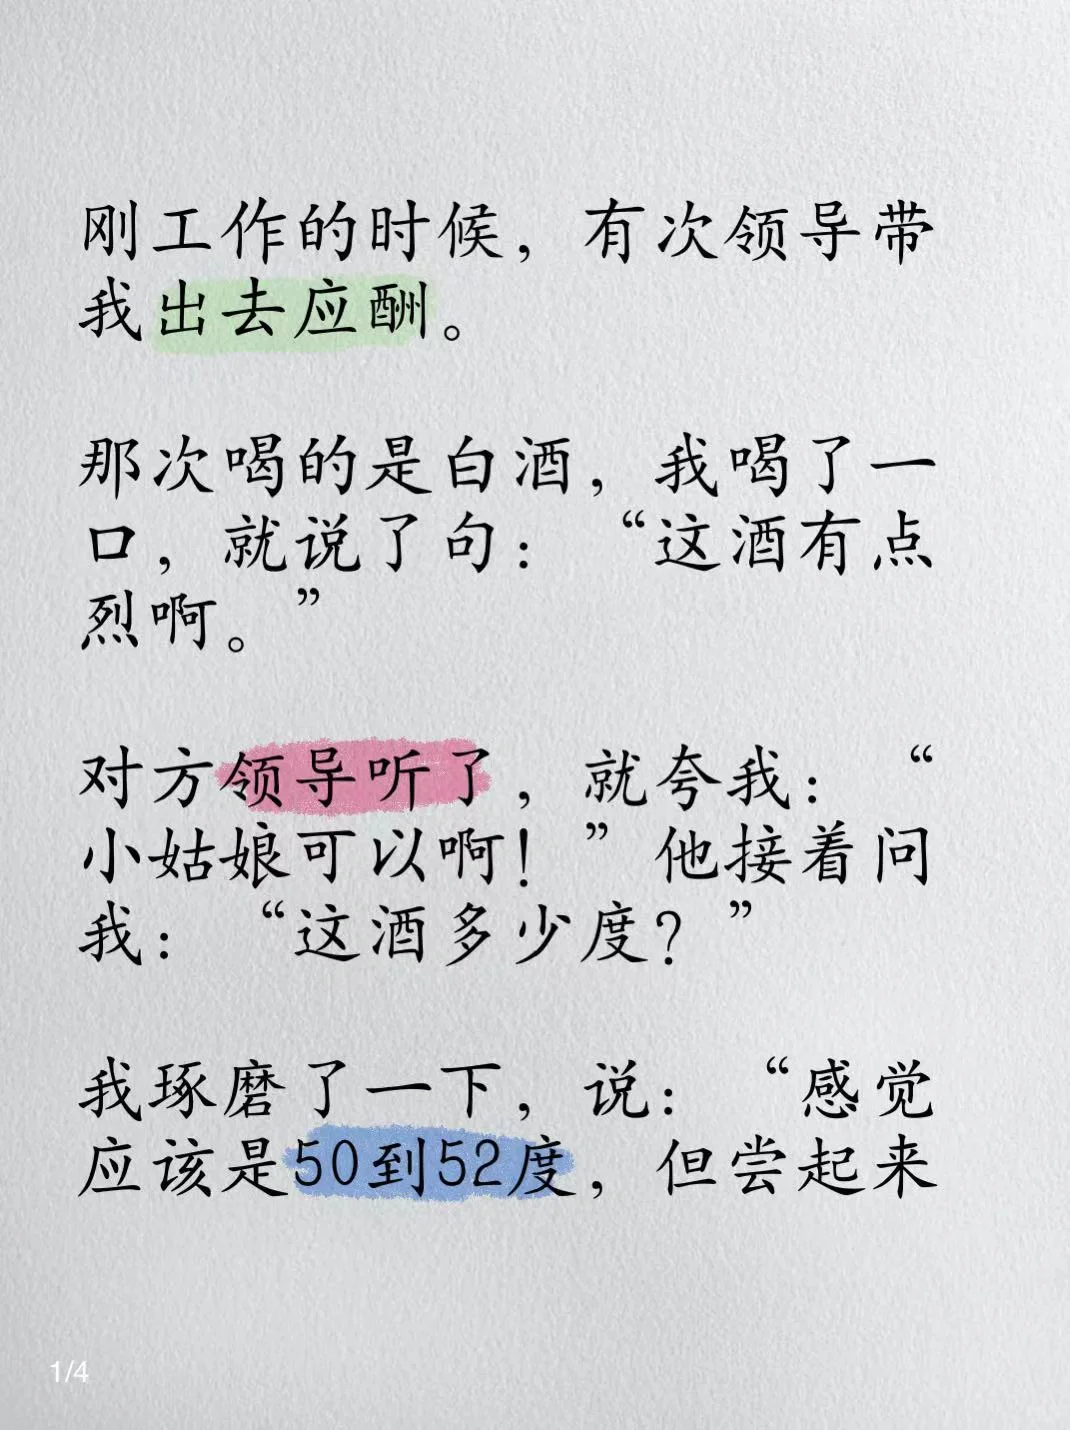 刚工作的时候，有次领导带
我出去应酬。
那次喝的是白酒，我喝了一
口，就说了句：“这酒有点
烈啊。”
对方领导听了，就夸我：“
小姑娘可以啊！”他接着问
我：“这酒多少度？”
我琢磨了一下，说：“感觉
应该是50到52度，但尝起来
1/4